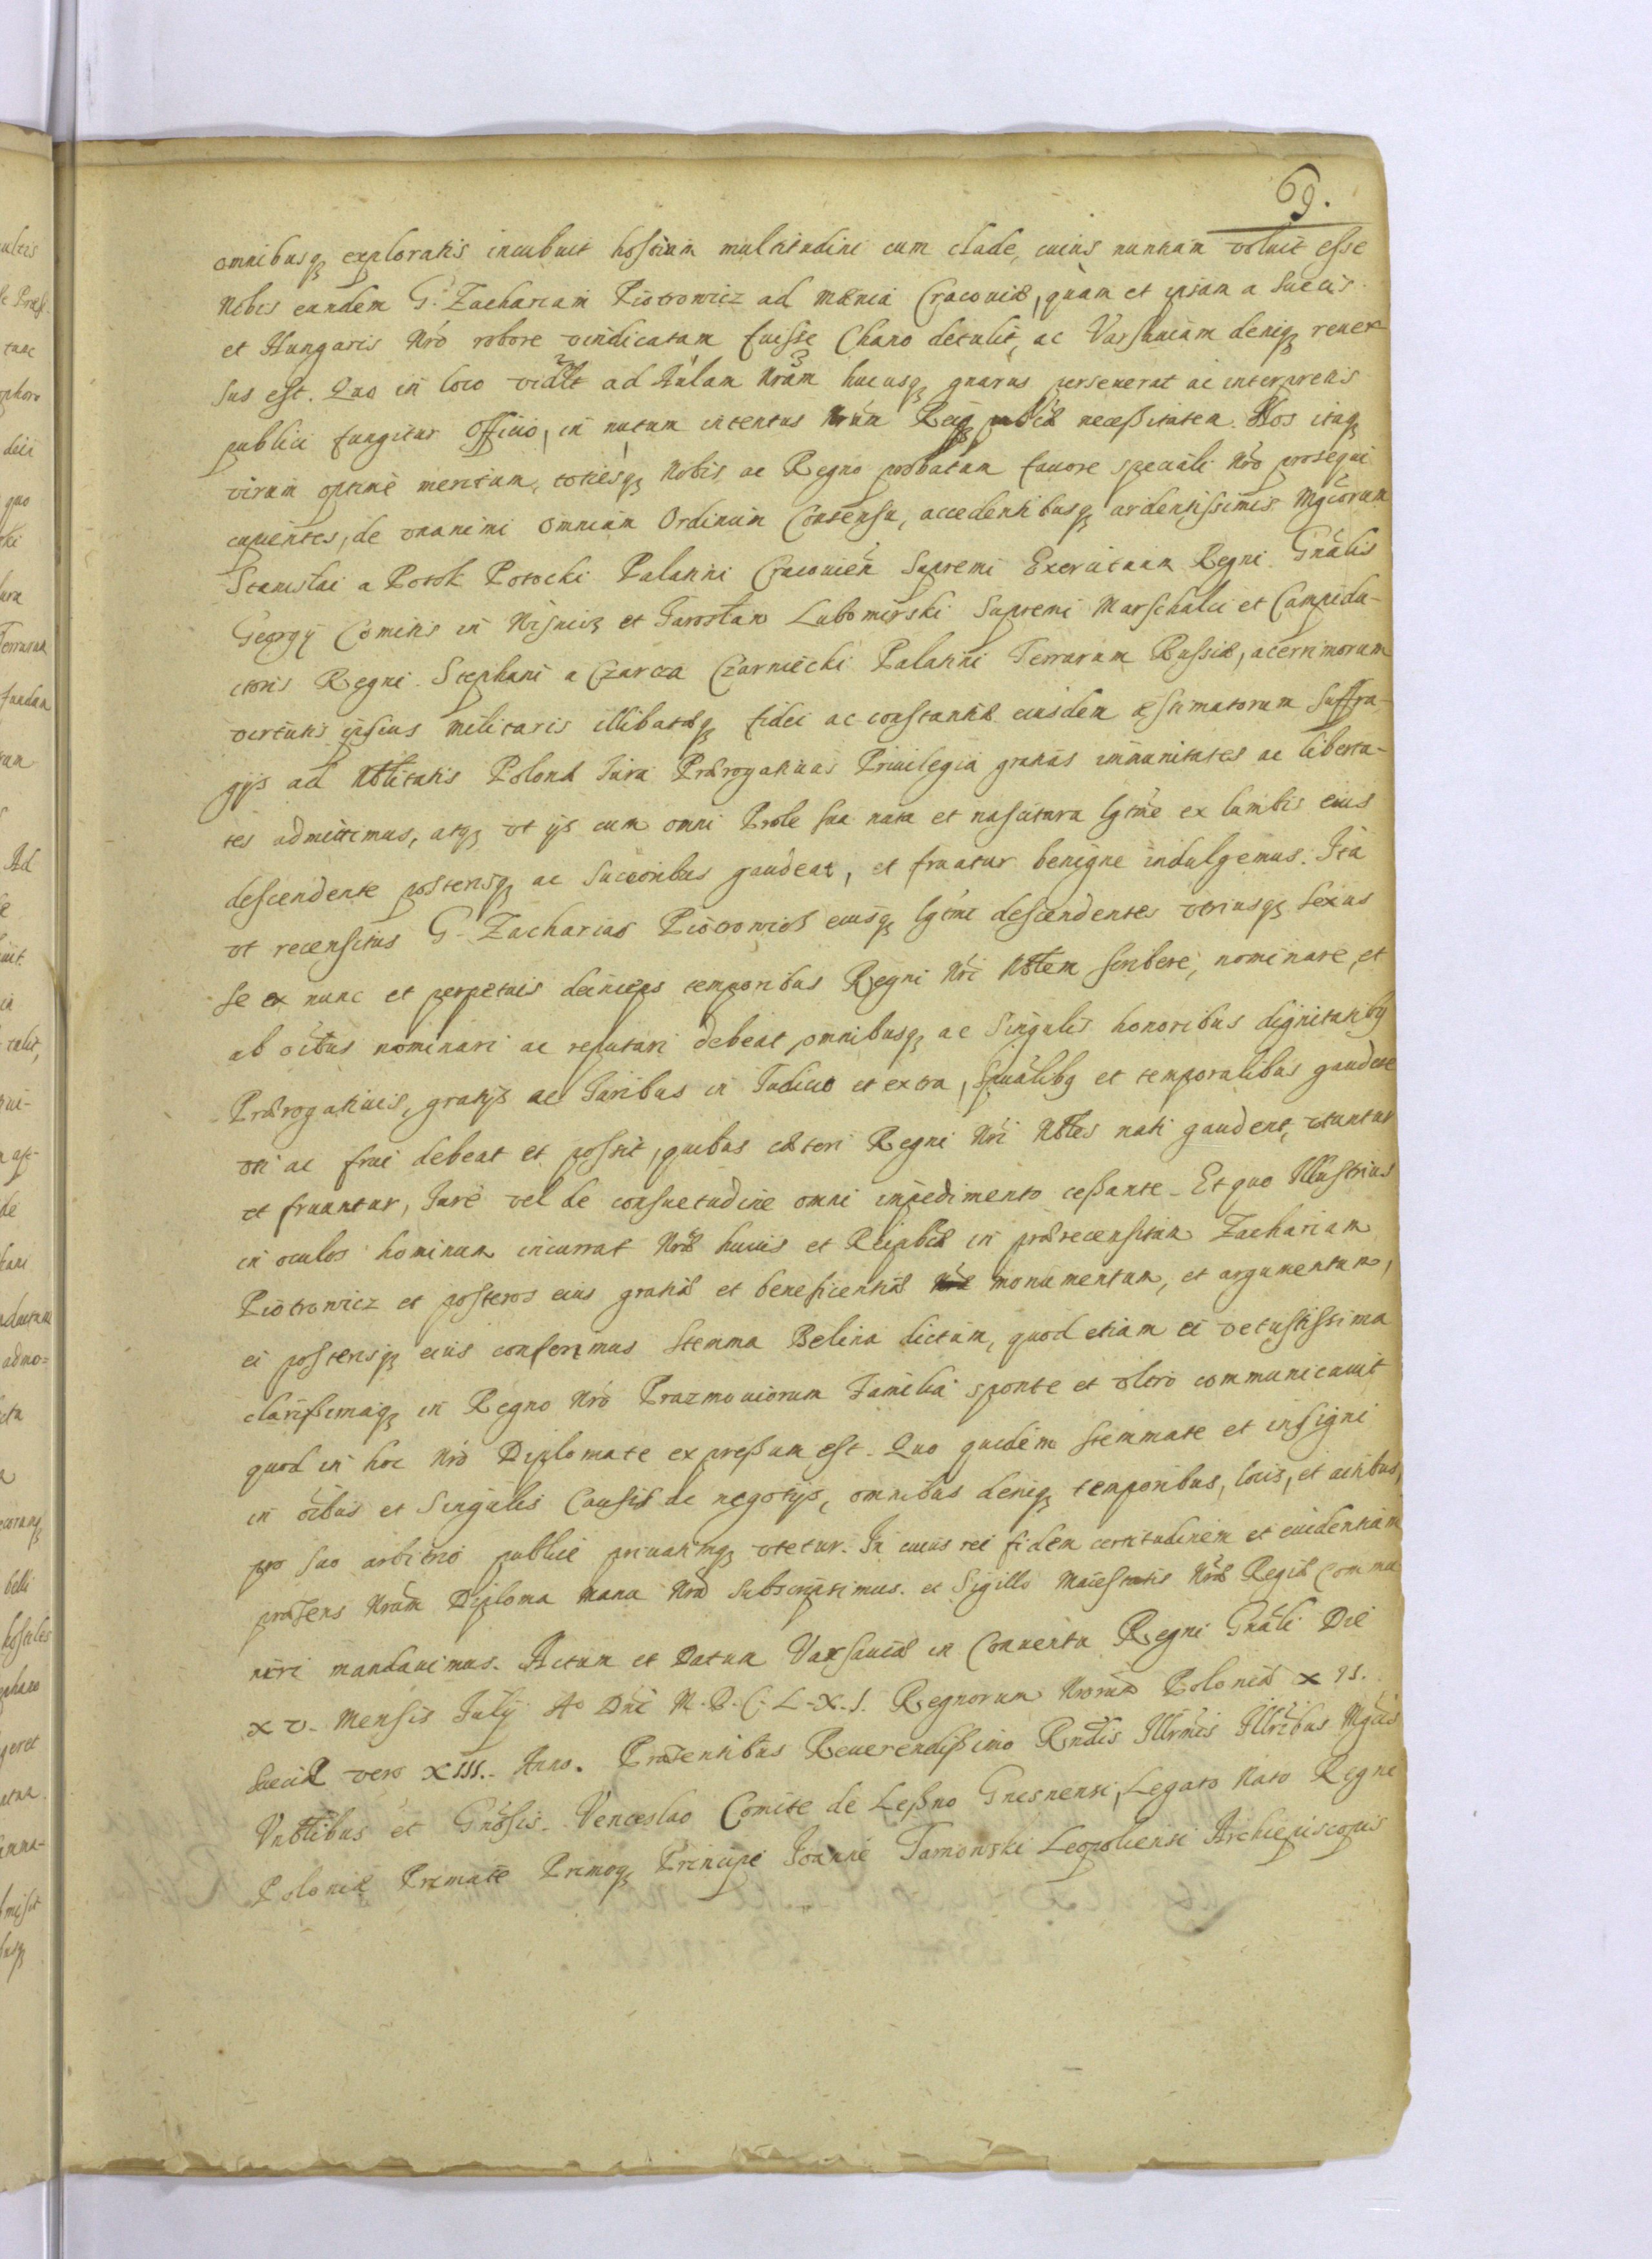 69.
omnibusq exploratis incubuit hostium multitudini cum clade, cuius nuntium voluit esse
Nobis eundem G. Zachariam Piotrowicz ad Mænia Cracouiæ, quam et ipsam a Suecis
et Hungaris Nro robore vindicatam fuisse Chano detulit, ac Varsauiam deniq reuer
sus est. Quo in loco ad Aulam Nram hucusq gnarus perseuerat ac interpretis
publici fungitur Officio, in nutum intentus Nrum Reiq necessitatem. Nos itaq
virum optimè meritum, totiesq Nobis ac Regno probatum fauore speciali Nro prosequi
cupientes, de vnanimi Omnium Ordinum Consensu, accedentibusq ardentissimis Mgcorum
Stanislai a Potok Potocki Palatini Cracouien Supremi Exercituum Regni Gnalis
Georgij Comitis in Wisnicz et Jarosław Lubomirski Supremi Marschalci et Campidu-
ctoris Regni. Stephani a Czarcza Czarniecki Palatini Terrarum Russiæ, acerrimorum
virtutis ipsius militaris illibatæq fidei ac constantiæ eiusdem æstimatorum Suffra-
gijs ad Nobtitatis Polonæ Jura Prærogatiuas Priuilegia gratias immunitates ac liberta-
tes admittimus, atq vt ijs cum omni Prole sua nata et nascitura lgtme ex lumbis eius
descendente posterisq ac Succoribus gaudeat, et fruatur benigne indulgemus. Ita
vt recensitus G. Zacharias Piotrowicz eiusq lgtmi descendentes vtriusq Sexus
se ex nunc et perpetuis deinceps temporibus Regni Nri Nobtem scribere, nominare, et
ab oibus nominari ac reputari debeat, omnibusq ac Singulis honoribus dignitatibq
Prærogatiuis, gratijs ac Juribus in Judicio et extra, Spualibq et temporalibus gaudere
vti ac frui debeat et possit, quibus cæteri Regni Nri Nobtes nati gaudent, vtuntur
et fruuntur, Jure vel de consuetudine omni impedimento cessante. Et quo Illustrius
in oculos hominum incurrat Nræ huius et Reipbcæ in prærecensitum Zachariam
Piotrowicz et posteros eius gratiæ et beneficentiæ monumentum, et argumentum,
ei posterisq eius conferimus Stemma Belina dictum, quod etiam ei vetustissima
clarissimaq in Regno Nro Prazmouiorum Familia sponte et vltro communicauit
quod in hoc Nro Diplomate expressum est. Quo quidem stemmate et insigni
in oibus et Singulis Causis de negotijs, omnibus deniq temporibus, locis, et actibus,
pro suo arbitrio publice priuatimq vtetur. In cuius rei fidem certitudinem et euidentiam
præsens Nrum Diploma manu Nra Subscripsimus. et Sigillo Maiestatis Nræ Regiæ commu
niri mandauimus. Actum et Datum Varsauiæ in Conuentu Regni Gnali Die
XV. Mensis Julij Ao Dni M.D.C.L.X.I. Regnorum Nrorum Poloniæ X
Sueciæ vero XIII. Anno. Præsentibus Reuerendissimo Rndis Illrmis Illribus Mgcis
Vnobtibus et Gnosis. Venceslao Comite de Lessno Gnesnensi, Legato Nato Regni
Poloniæ Primate Primoq Principe Joanne Tarnowski Leopoliensi Archiepiscopis